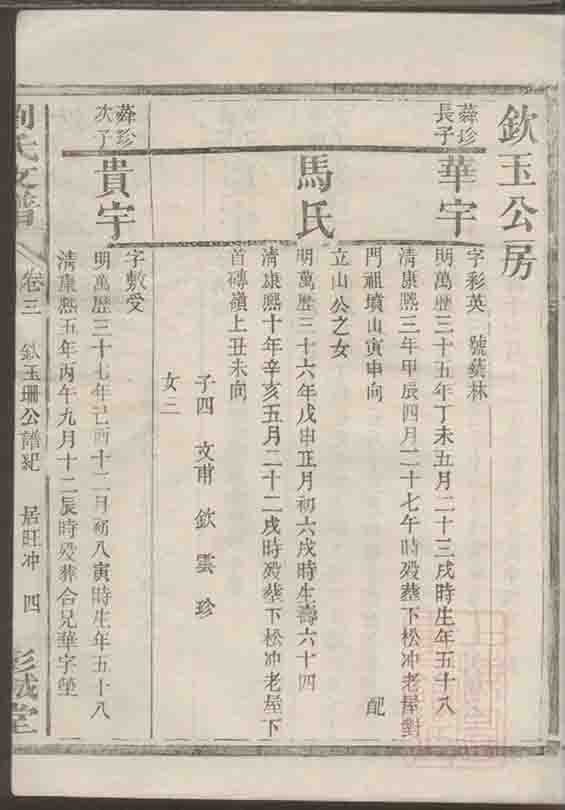 欽玉公房
蕣珍
長子
華宇
字彩英 號蘂林
明萬歷三十五年丁未五月二十三戌時生年五十八
清康熙三年甲辰四月二十七午時歿塟下松冲老屋對
門祖墳山寅申向 配
馬氏
立山公之女
明萬歷三十六年戊申正月初六戌時生壽六十四
清康熙十年辛亥五月二十二戌時歿塟下松冲老屋下
首磚嶺上丑未向
子四 文甫 欽 雲 珍
女三
蕣珍
次子
貴宇
字敷受
明萬歷三十七年己酉十二月初八寅時生年五十八
清康熙五年丙午九月十二辰時歿葬合兄華字塋
劉氏支譜
卷三 欽玉珊公譜紀 居旺冲 四
彭城堂